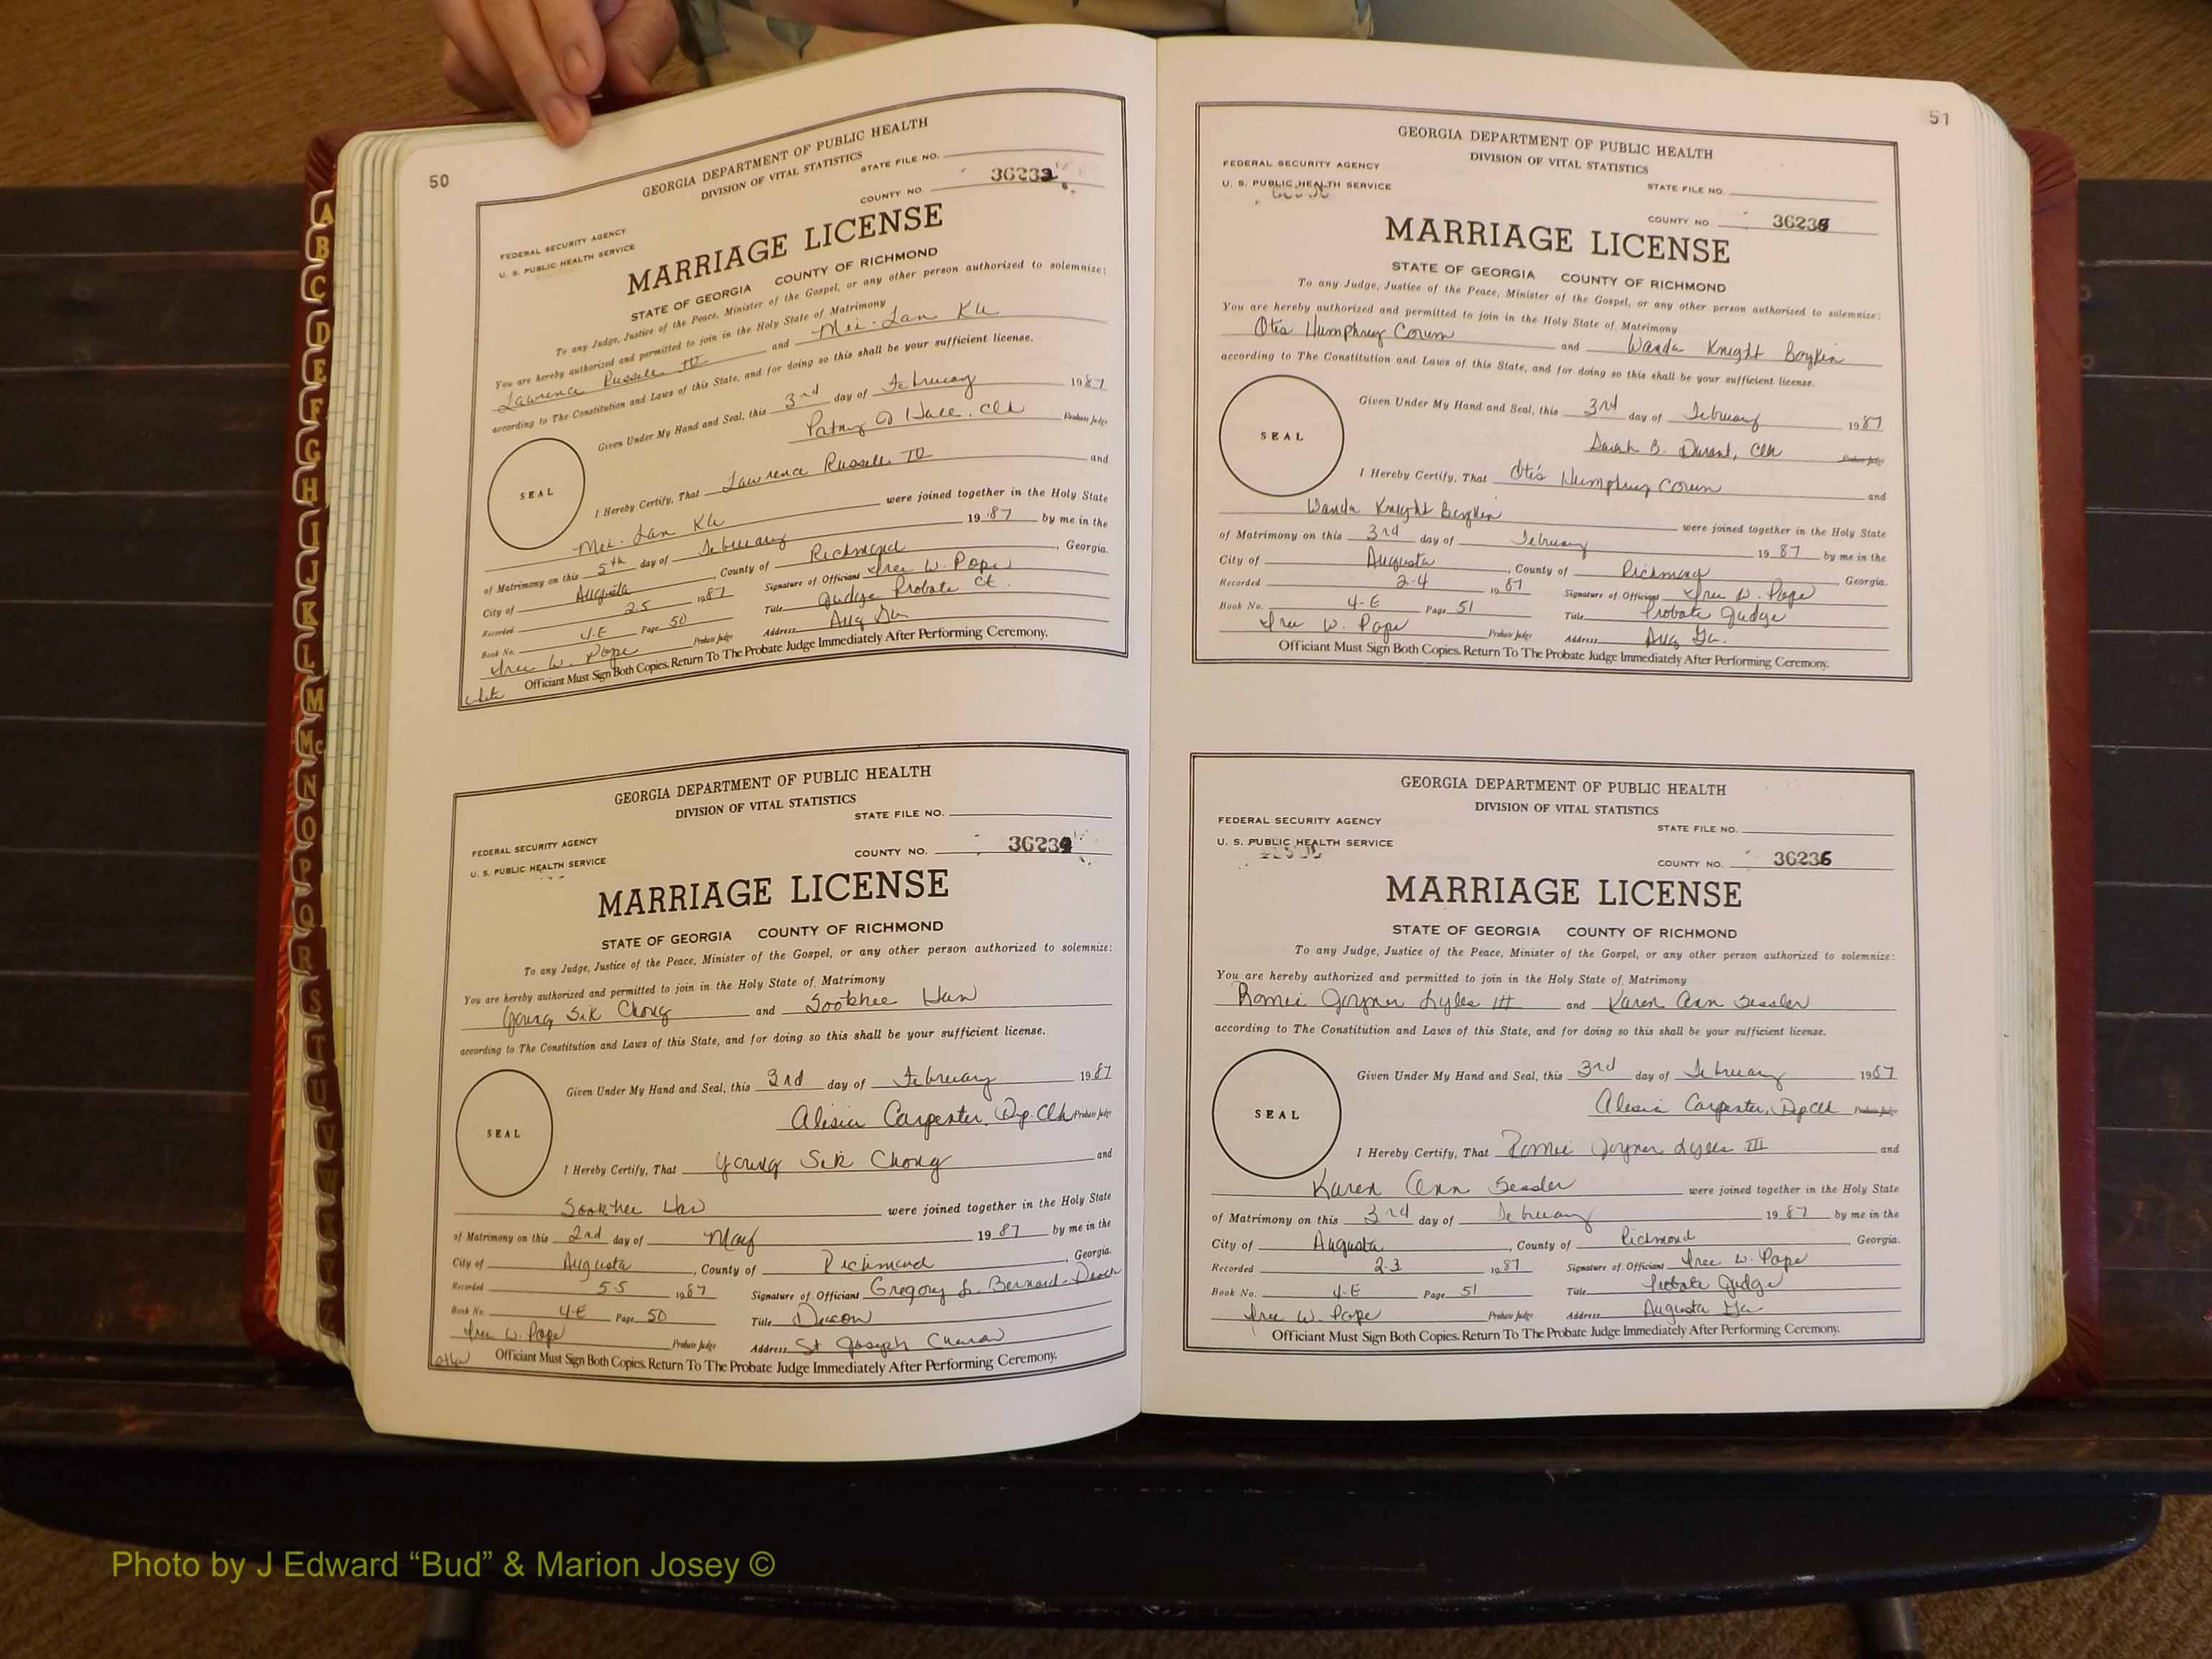 50
GEORGIA DEPARTMENT OF PUBLIC HEALTH
DIVISION OF VITAL STATISTICS
STATE FILE NO.
COUNTY NO. 36233
FEDERAL SECURITY AGENCY
U. S. PUBLIC HEALTH SERVICE
MARRIAGE LICENSE
STATE OF GEORGIA COUNTY OF RICHMOND
To any Judge, Justice of the Peace, Minister of the Gospel, or any other person authorized to solemnize:
You are hereby authorized and permitted to join in the Holy State of Matrimony
Lawrence Russell and Mei-Lan Ku
according to The Constitution and Laws of this State, and for doing so this shall be your sufficient license.
Given Under My Hand and Seal, this 3rd day of February 1987
Clk Probate Judge
SEAL
I Hereby Certify, That Lawrence Russell and
Mei-Lan Ku were joined together in the Holy State
of Matrimony on this 5th day of February 1987 by me in the
City of Augusta, County of Richmond, Georgia.
Recorded 2-5 1987 Signature of Officiant W. Pope
Book No. 4-E Page 50 Title Judge Probate Ct.
W. Pope Probate Judge Address Aug Ga
Officiant Must Sign Both Copies. Return To The Probate Judge Immediately After Performing Ceremony.
GEORGIA DEPARTMENT OF PUBLIC HEALTH
DIVISION OF VITAL STATISTICS
STATE FILE NO.
FEDERAL SECURITY AGENCY
COUNTY NO. 36234
U. S. PUBLIC HEALTH SERVICE
MARRIAGE LICENSE
STATE OF GEORGIA COUNTY OF RICHMOND
To any Judge, Justice of the Peace, Minister of the Gospel, or any other person authorized to solemnize:
You are hereby authorized and permitted to join in the Holy State of Matrimony
Young Sik Chong and Sookhee Han
according to The Constitution and Laws of this State, and for doing so this shall be your sufficient license.
Given Under My Hand and Seal, this 3rd day of February 1987
Alesia Carpenter, Dep. Clk Probate Judge
SEAL
I Hereby Certify, That Young Sik Chong and
Sookhee Han were joined together in the Holy State
of Matrimony on this 2nd day of May 1987 by me in the
City of Augusta, County of Richmond, Georgia.
Recorded 5-5 1987 Signature of Officiant Gregory L. Bernard
Book No. 4-E Page 50 Title Deacon
W. Pope Probate Judge Address St Joseph Church
Officiant Must Sign Both Copies. Return To The Probate Judge Immediately After Performing Ceremony.
51
GEORGIA DEPARTMENT OF PUBLIC HEALTH
DIVISION OF VITAL STATISTICS
FEDERAL SECURITY AGENCY
U. S. PUBLIC HEALTH SERVICE
STATE FILE NO.
COUNTY NO. 36235
MARRIAGE LICENSE
STATE OF GEORGIA COUNTY OF RICHMOND
To any Judge, Justice of the Peace, Minister of the Gospel, or any other person authorized to solemnize:
You are hereby authorized and permitted to join in the Holy State of Matrimony
Otis Humphrey Corum and Wanda Knight Boykin
according to The Constitution and Laws of this State, and for doing so this shall be your sufficient license.
Given Under My Hand and Seal, this 3rd day of February 1987
Sarah B. Durant, Clk Probate Judge
SEAL
I Hereby Certify, That Otis Humphrey Corum and
Wanda Knight Boykin were joined together in the Holy State
of Matrimony on this 3rd day of February 1987 by me in the
City of Augusta, County of Richmond, Georgia.
Recorded 2-4 1987 Signature of Officiant W. Pope
Book No. 4-E Page 51 Title Probate Judge
W. Pope Probate Judge Address Aug Ga.
Officiant Must Sign Both Copies. Return To The Probate Judge Immediately After Performing Ceremony.
GEORGIA DEPARTMENT OF PUBLIC HEALTH
DIVISION OF VITAL STATISTICS
FEDERAL SECURITY AGENCY
STATE FILE NO.
U. S. PUBLIC HEALTH SERVICE
COUNTY NO. 36236
MARRIAGE LICENSE
STATE OF GEORGIA COUNTY OF RICHMOND
To any Judge, Justice of the Peace, Minister of the Gospel, or any other person authorized to solemnize:
You are hereby authorized and permitted to join in the Holy State of Matrimony
Romie Joyner Lyles III and Karen Ann Sessler
according to The Constitution and Laws of this State, and for doing so this shall be your sufficient license.
Given Under My Hand and Seal, this 3rd day of February 1987
Alesia Carpenter, Dep Clk Probate Judge
SEAL
I Hereby Certify, That Romie Joyner Lyles III and
Karen Ann Sessler were joined together in the Holy State
of Matrimony on this 3rd day of February 1987 by me in the
City of Augusta, County of Richmond, Georgia.
Recorded 2-3 1987 Signature of Officiant W. Pope
Book No. 4-E Page 51 Title Probate Judge
W. Pope Probate Judge Address Augusta Ga
Officiant Must Sign Both Copies. Return To The Probate Judge Immediately After Performing Ceremony.
A
B
C
D
E
F
G
H
I
J
K
L
M
Mc
N
O
P
Q
R
S
T
U
V
W
Photo by J Edward “Bud” & Marion Josey ©